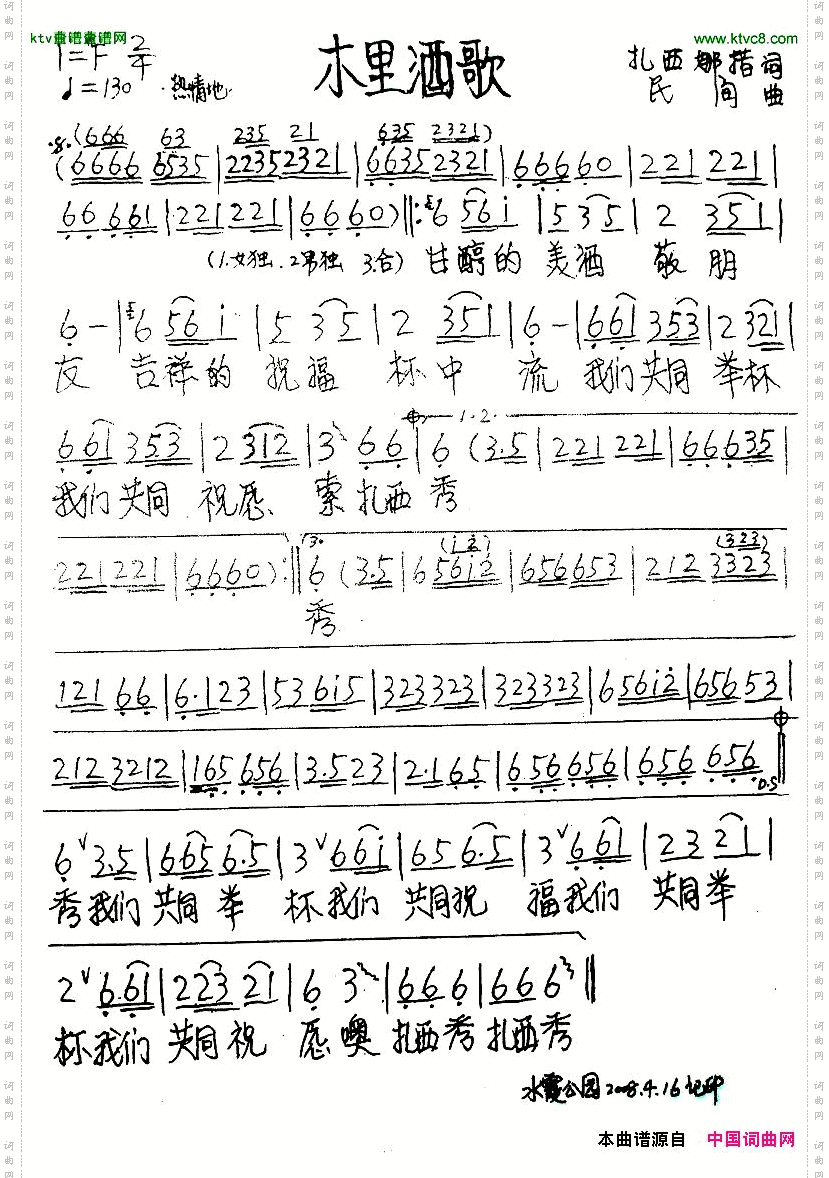 ktv歌谱歌谱网 www.ktvc8.com
1=F 2/4 木里酒歌 扎西娜措词
♩=130 热情地 民间曲
(666 63 235 21 635 2321)
.8. (6666 6535 | 22352321 | 66352321 | 66660 | 221 221 |
66 661 | 221 221 | 6660) ‖: 6 561 | 5 35 | 2 351 |
(1.女独.2男独 3.合) 甘醇的 美酒 敬朋
6 – | 6 56 1 | 5 35 | 2 351 | 6 – | 661 353 | 2 321 |
友 吉祥的 祝福 杯中 流 我们共同 举杯
1.2.
661 353 | 2 312 | 3 66 | 6 (3.5 | 221 221 | 666635 |
我们共同 祝愿 索扎西秀
3. (1 2) (323)
221221 | 6660) :‖ 6 (3.5 | 6 5612 | 656653 | 212 3323 |
秀
121 66 | 6.123 | 53 615 | 323323 | 323323 | 65612 | 65653 |
212 3212 | 165 656 | 3.523 | 2.165 | 656656 | 656 656 ‖
D.S
6 ∨ 3.5 | 665 6.5 | 3 ∨ 661 | 65 6.5 | 3 ∨ 661 | 23 21 |
秀我们 共同 举 杯我们 共同祝 福我们 共同举
2 ∨ 6.61 | 223 21 | 6 3 | 66 6 | 66 6 ‖
杯我们 共同祝 愿噢 扎西秀扎西秀
水霞公园2008.4.16记印
本曲谱源自 中国词曲网
词曲网